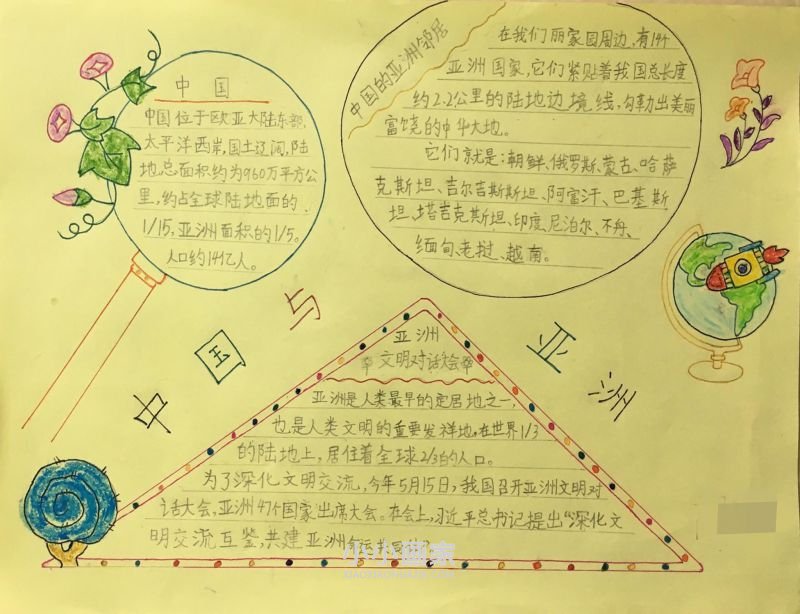 中国
中国位于欧亚大陆东部,
太平洋西岸,国土辽阔,陆
地总面积约为960万平方公
里,约占全球陆地面的
1/15,亚洲面积的1/5。
人口约14亿人。
中国的亚洲邻居
在我们丽家园周边,有14个
亚洲国家,它们紧贴着我国总长度
约2.2公里的陆地边境线,勾勒出美丽
富饶的中华大地。
它们就是:朝鲜、俄罗斯、蒙古、哈萨
克斯坦、吉尔吉斯斯坦、阿富汗、巴基斯
坦、塔吉克斯坦、印度、尼泊尔、不丹、
缅甸、老挝、越南。
中国与亚洲
亚洲
文明对话大会
亚洲是人类最早的定居地之一,
也是人类文明的重要发祥地,在世界1/3
的陆地上,居住着全球2/3的人口。
为了深化文明交流,今年5月15日,我国召开亚洲文明对
话大会,亚洲47个国家出席大会。在会上,习近平总书记提出“深化文
明交流互鉴,共建亚洲命运共同
小小画家